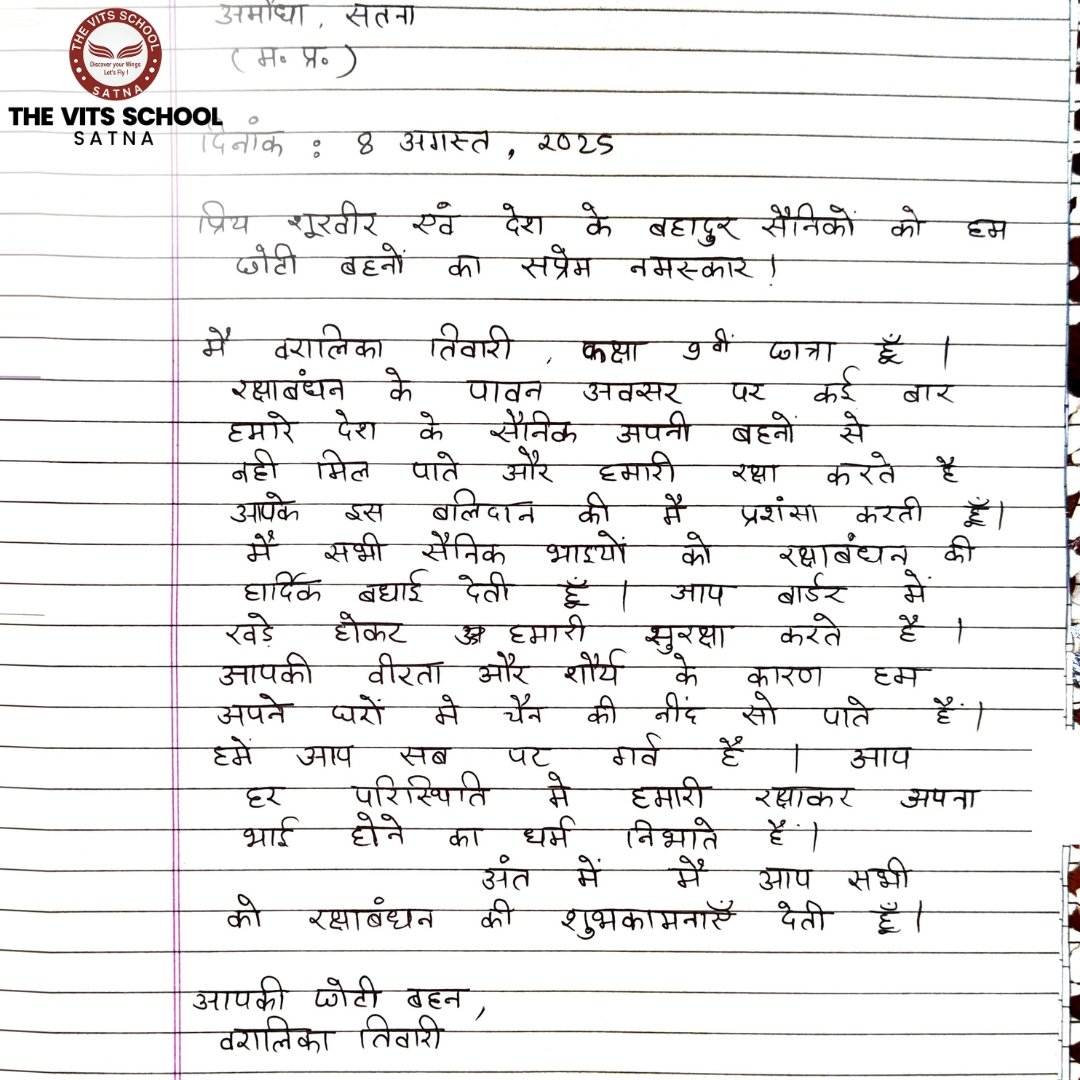 अमौधा, सतना
THE VITS SCHOOL
Discover your Wings
Let's Fly !
SATNA
( म॰ प्र॰ )
THE VITS SCHOOL
SATNA
दिनांक : 8 अगस्त, २०25
प्रिय शूरवीर एवं देश के बहादुर सैनिकों को हम
छोटी बहनों का सप्रेम नमस्कार !
मैं वरालिका तिवारी , कक्षा 9वीं छात्रा हूँ ।
रक्षाबंधन के पावन अवसर पर कई बार
हमारे देश के सैनिक अपनी बहनों से
नही मिल पाते और हमारी रक्षा करते है
आपके इस बलिदान की मैं प्रशंसा करती हूँ।
मैं सभी सैनिक भाइयों को रक्षाबंधन की
हार्दिक बधाई देती हूँ । आप बार्डर में
खड़े होकर हमारी सुरक्षा करते है ।
आपकी वीरता और शौर्य के कारण हम
अपने घरों मे चैन की नींद सो पाते हैं।
हमें आप सब पर गर्व है । आप
हर परिस्थिति मे हमारी रक्षाकर अपना
भाई होने का धर्म निभाते हैं।
अंत में मैं आप सभी
को रक्षाबंधन की शुभकामनाएँ देती हूँ।
आपकी छोटी बहन,
वरालिका तिवारी